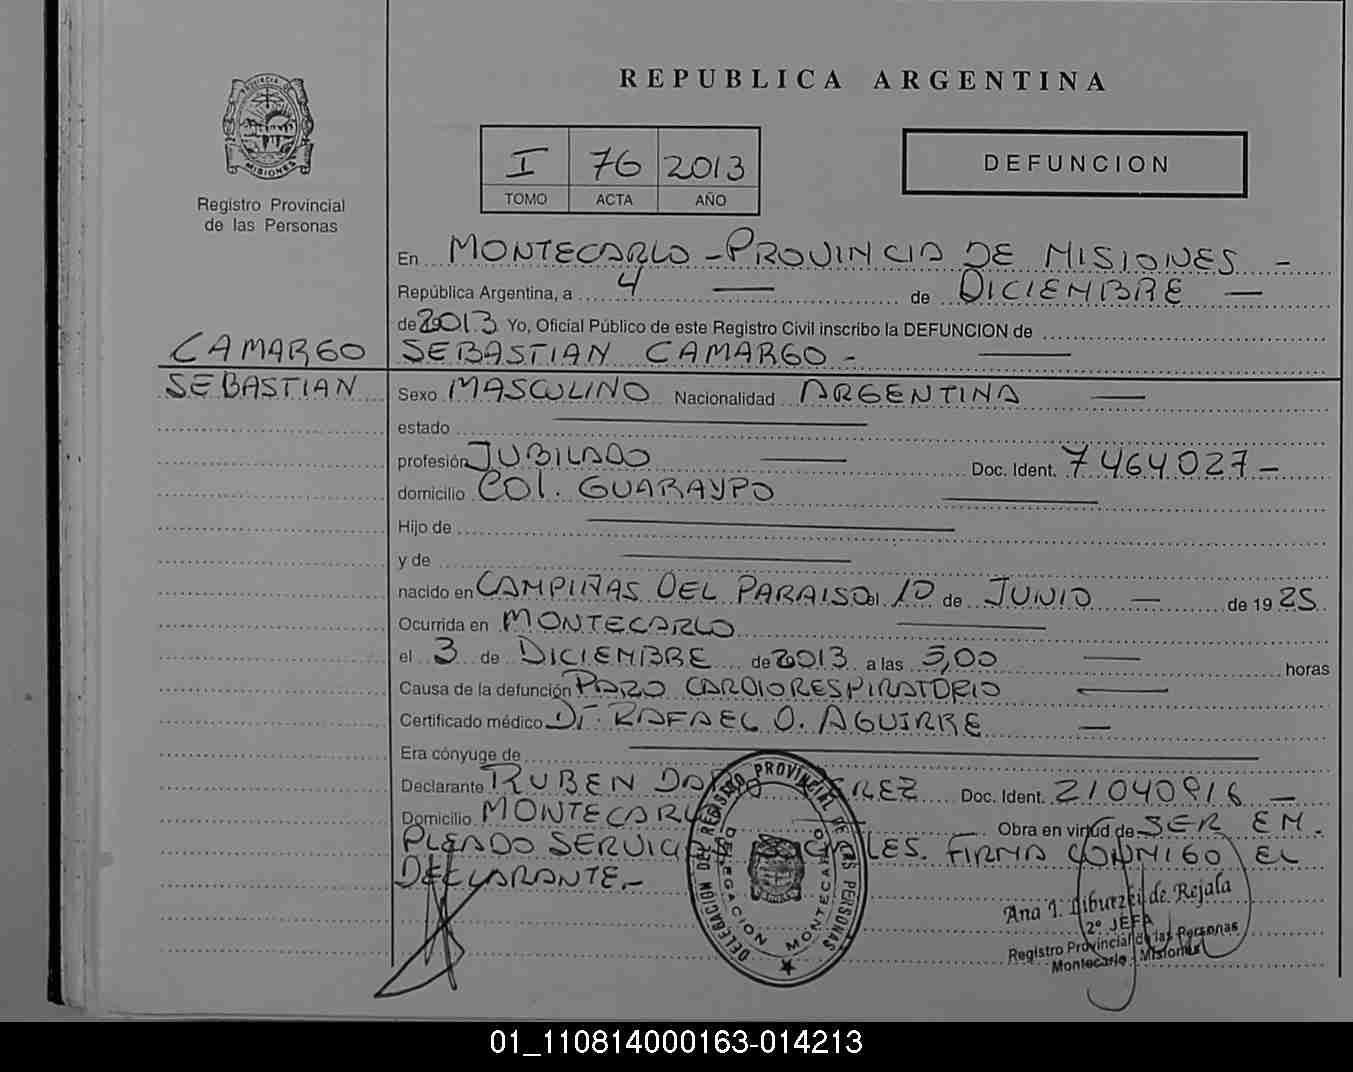 REPUBLICA ARGENTINA
PROVINCIA DE
MISIONES
Registro Provincial
de las Personas
I 76 2013
TOMO ACTA AÑO
DEFUNCION
En MONTECARLO - PROVINCIA DE MISIONES -
República Argentina, a 4 de DICIEMBRE
de 2013 Yo, Oficial Público de este Registro Civil inscribo la DEFUNCION de
CAMARGO SEBASTIAN CAMARGO -
SEBASTIAN Sexo MASCULINO Nacionalidad ARGENTINA
estado
profesión JUBILADO Doc. Ident. 7464027 -
domicilio COL. GUARAYPO
Hijo de
y de
nacido en CAMPIÑAS DEL PARAISO el 10 de JUNIO de 1925
Ocurrida en MONTECARLO
el 3 de DICIEMBRE de 2013 a las 5,00 horas
Causa de la defunción PARO CARDIORESPIRATORIO
Certificado médico Dr. RAFAEL O. AGUIRRE
Era cónyuge de
Declarante RUBEN Doc. Ident. 21040916 -
Domicilio MONTECARLO Obra en virtud de SER EM.
PLEADO SERVICIOS FIRMA CONMIGO EL
DECLARANTE.-
DELEGACION DEL REGISTRO PROVINCIAL DE LAS PERSONAS
DELEGACION MONTECARLO
Ana I. de Rejala
2º JEFA
Registro Provincial de las Personas
Montecarlo - Misiones
01_110814000163-014213